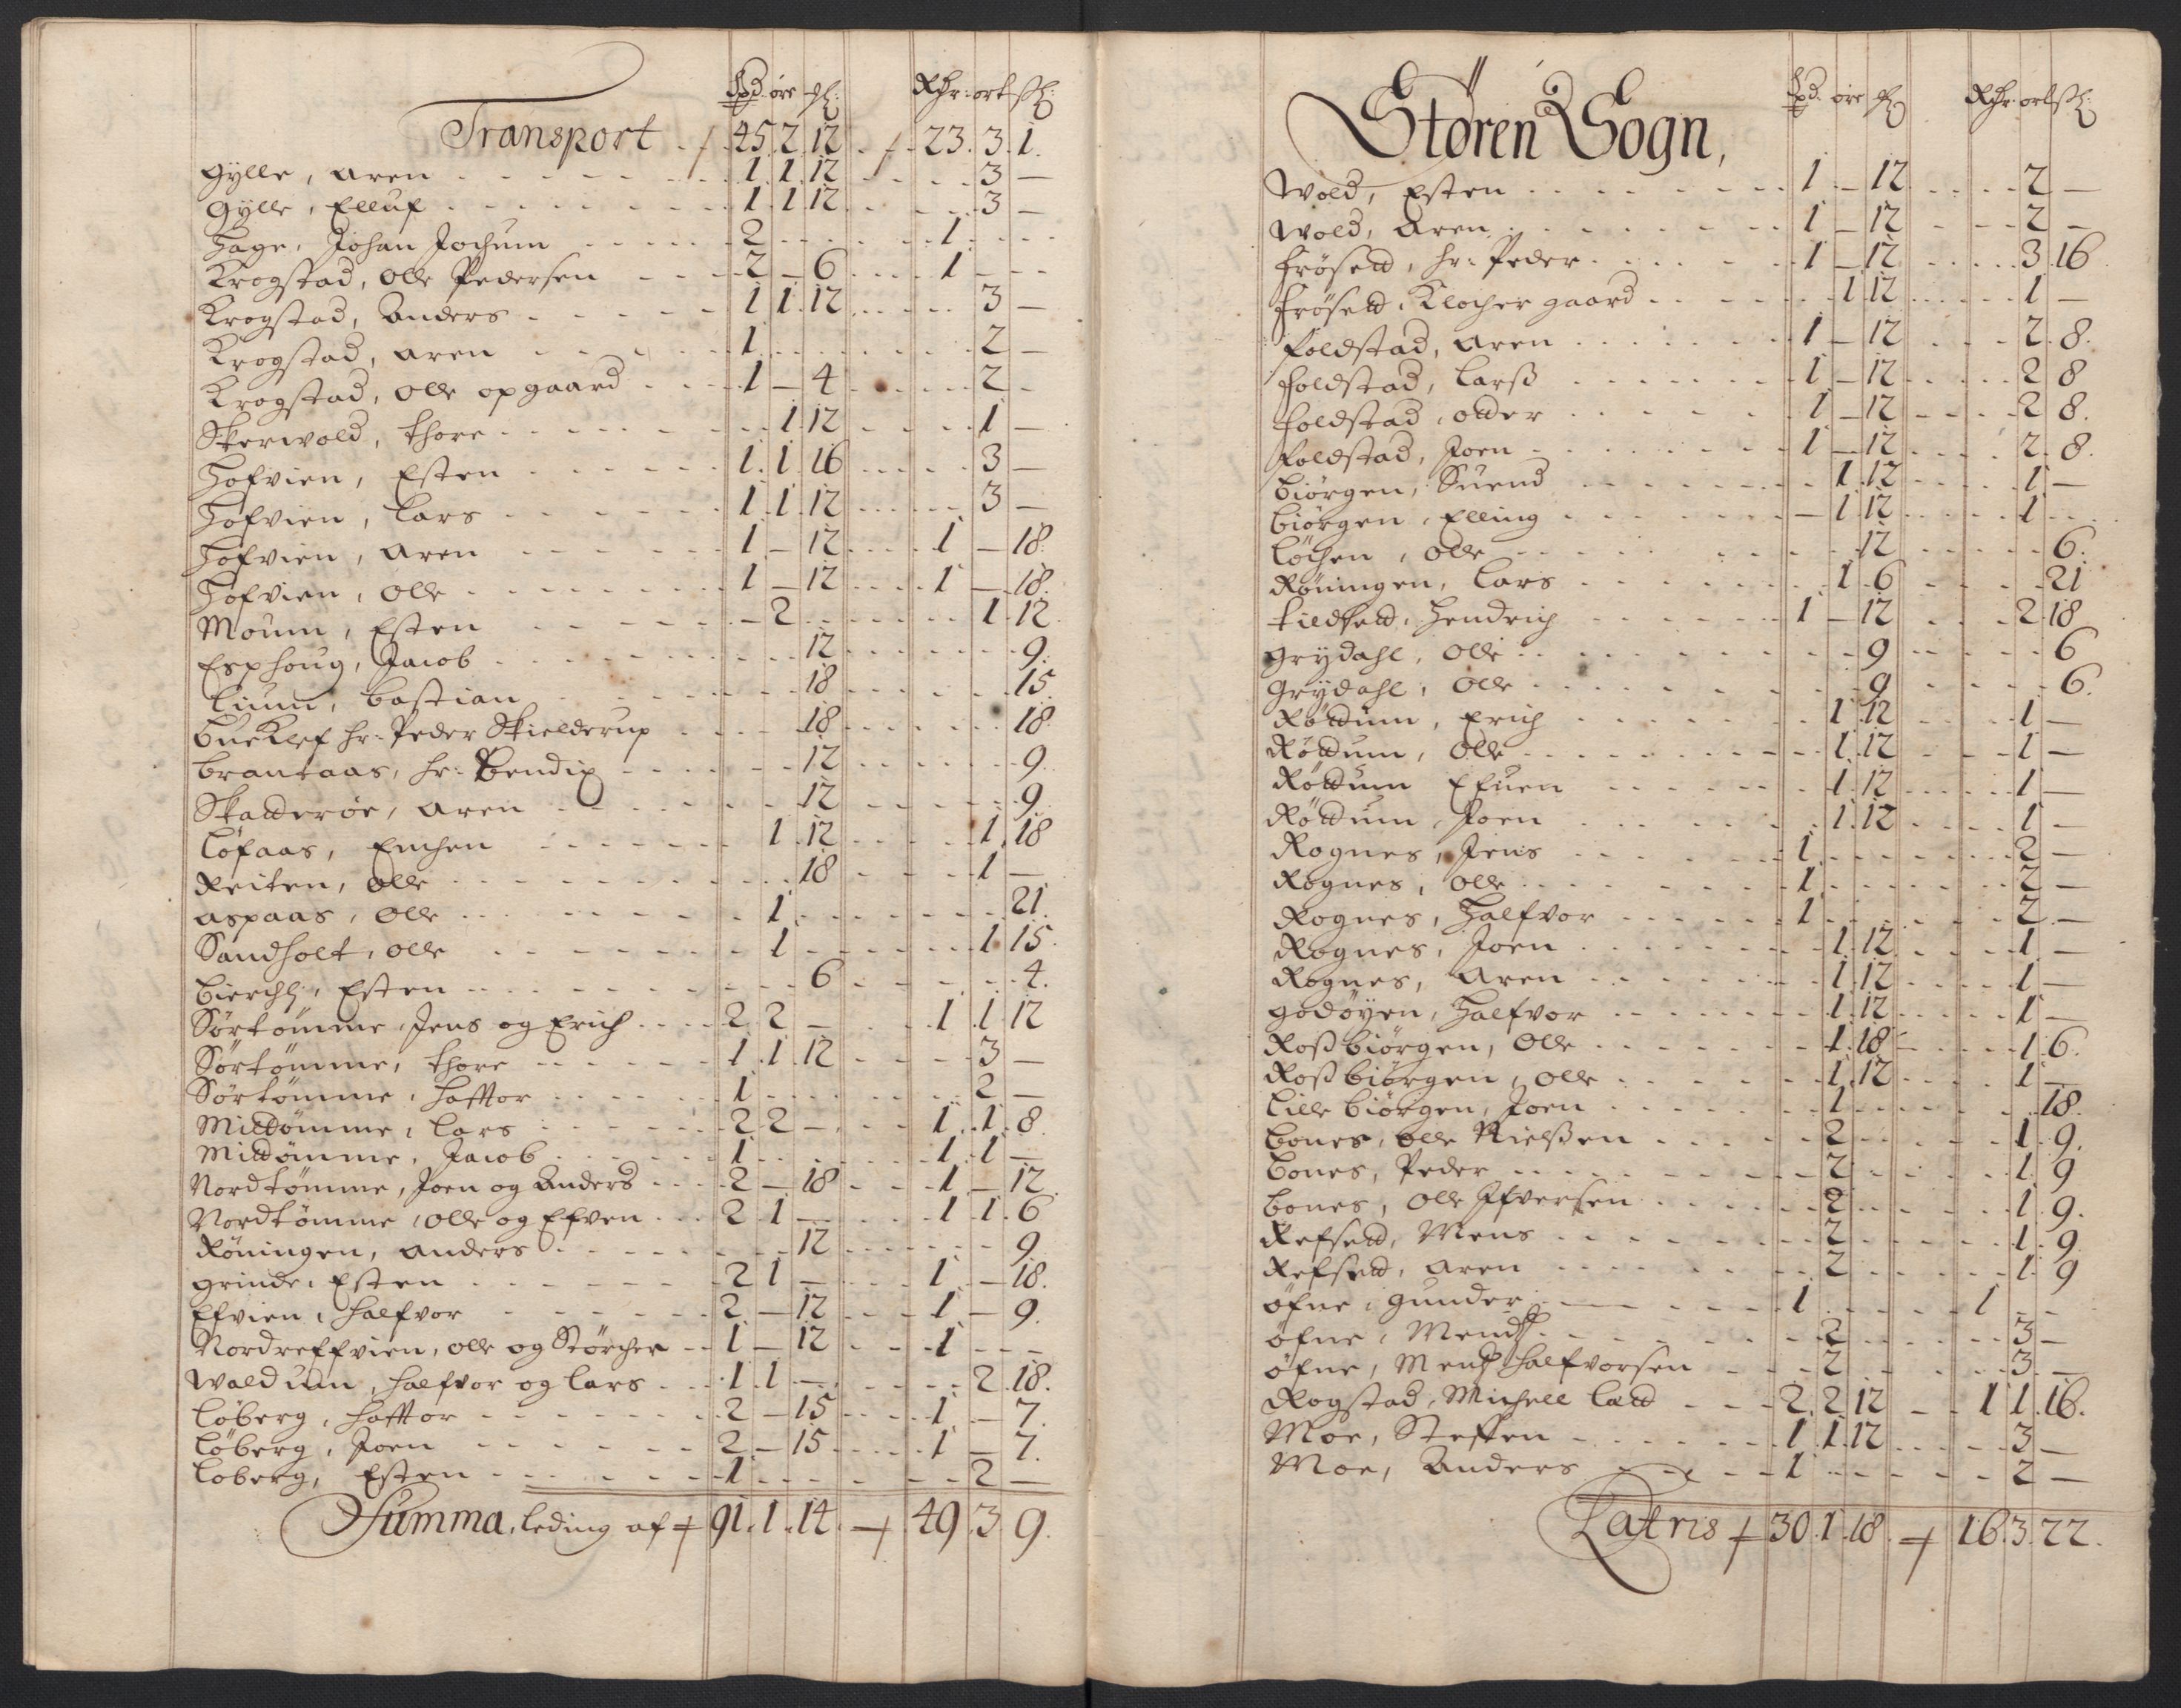 Spd: øre ₰: Rdr: ort ß:
Transport 45 2 12 23. 3. 1.
Gylle, Aren 1. 1. 12 3 —
Gylle, Elluf 1 1 12 3 —
Hage, Johan Jochum 2 1
Krogstad, Olle Pedersen 2 — 6 1 —
Krogstad, Anders 1 1. 12 3 —
Krogstad, Aren 1 2 —
Krogstad, Olle opgaard 1 — 4 2 —
Skerwold, Thore 1 12 1 —
Hofvien, Esten 1. 1 16 3 —
Hofvien, Lars 1 1 12 3 —
Hofvien, Aren 1 — 12 1 — 18.
Hofvien, Olle 1 — 12 1 — 18.
Moum, Esten — 2 1 12
Esphoug, Jacob 12 9.
Lium, Bastian 18 15
Bueklef hr: Peder Skielderup 18 18
Brantaas, hr: Bendix 12 9.
Skatterøe, Aren 12 9.
Løfaas, Emhen 1 12 1. 18
Reiten, Olle 18 1 —
Aspaas, Olle 1 21
Sandholt, Olle 1 1 15.
Bierchl, Esten 6 4.
Sørtømme, Jens og Erich 2 2 — 1 1 12
Sørtømme, Thore 1 1 12 3 —
Sørtømme, Hafftor 1 2 —
Midtømme, Lars 2 2 — 1 1 8
Midtømme, Jacob 1 1 1 —
Nordtømme, Joen og Anders 2 — 18 1 — 12
Nordtømme, Olle og Efven 2 1 — 1 1. 6
Røningen, Anders 12 9.
Grinde, Esten 2 1 — 1 — 18.
Efvien, Halfvor 2 — 12 1 — 9.
Nordreffvien, Olle og Størcher 1 — 12 1
Waldum, Halfvor og Lars 1 1 — 2 18.
Løberg, Hafftor 2 — 15 1 — 7.
Løberg, Joen 2 — 15 1 — 7.
Løberg, Esten 1 2 —
Summa, leding af 91. 1. 14 49 3 9.
Støren Sogn,
Spd. øre ₰ Rdr: ort ß:
Wold, Esten 1 — 12 2 —
Wold, Aren 1 — 12 2 —
Frøsett, hr: Peder 1 — 12 3. 16
Frøsett, Klocher gaard 1 12 1 —
Foldstad, Aren 1 — 12 2. 8.
Foldstad, Larß 1 — 12 2 8
Foldstad, Otter 1 — 12 2 8.
Foldstad, Joen 1 — 12 2. 8.
Biørgen, Suend 1 12 1 —
Biørgen, Elling — 1 12 1
Løchen, Olle 12 6.
Røningen, Lars 1 6 21
Kieldsett, Hendrich 1 — 12 2 18
Grydahl, Olle 9 6
Grydahl, Olle 9 6.
Røttum, Erich 1 12 1 —
Røttum, Olle 1. 12 1 —
Røttum Efuen 1. 12 1 —
Røttum, Joen 1. 12 1 —
Rognes, Jens 1 2 —
Rognes, Olle 1 2 —
Rognes, Halfvor 1 2. —
Rognes, Joen 1. 12 1 —
Rognes, Aren 1. 12 1 —
Godøyen, Halfvor 1. 12 1 —
Roßbiørgen, Olle 1 18 1. 6.
Roßbiørgen, Olle 1. 12 1 —
Lille Biørgen, Joen 1 18.
Bones, Olle Nielßen 2 1 9.
Bones, Peder 2 1. 9
Bones, Olle Ifversen 2 1. 9.
Refsett, Mens 2 1. 9
Refsett, Aren 2 1. 9
Øfne, Gunder 1 1
Øfne, Mends 2 3 —
Øfne, Mends Halfvorsen 2 3 —
Rogstad, Michell Latt 2. 2 12 1 1. 16.
Moe, Steffen 1 1. 12 3 —
Moe, Anders 1 2 —
Latris 30. 1. 18. 16. 3. 22.